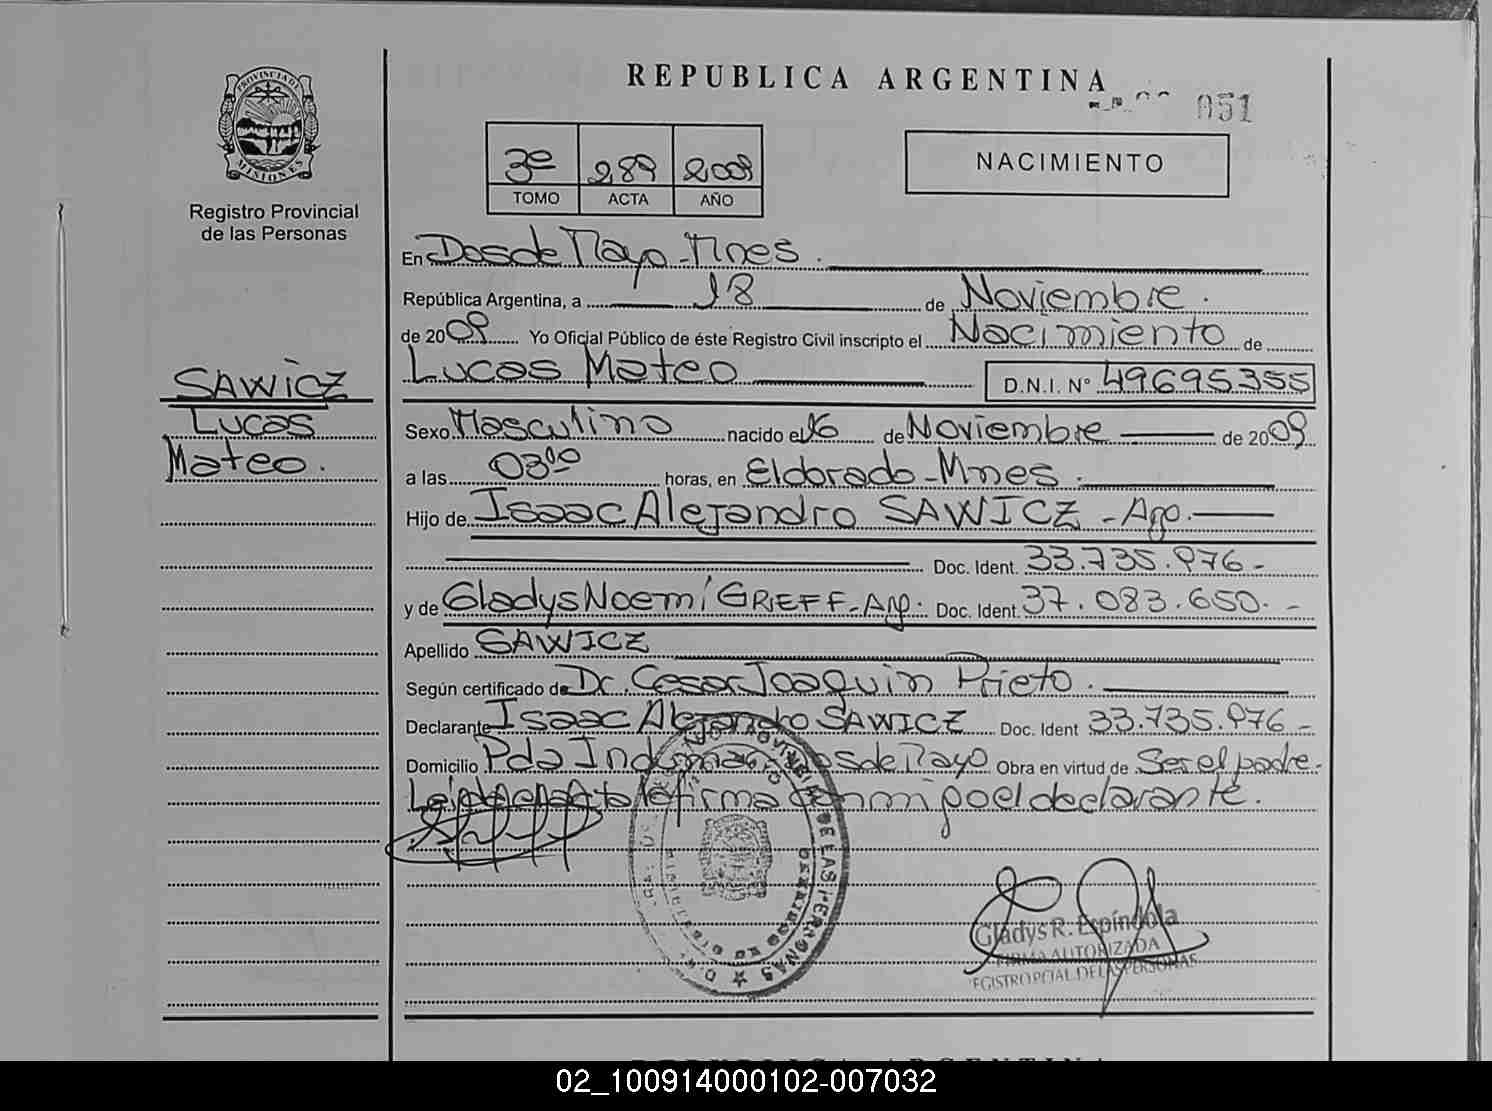 REPUBLICA ARGENTINA
051
PROVINCIA DE
MISIONES
Registro Provincial
de las Personas
3º 289 2009
TOMO ACTA AÑO
NACIMIENTO
En Dos de Mayo - Mnes.
República Argentina, a 18 de Noviembre.
de 2009 Yo Oficial Público de éste Registro Civil inscripto el Nacimiento de
Lucas Mateo D.N.I. Nº 49695355
SAWICZ
Lucas
Mateo.
Sexo Masculino nacido el 16 de Noviembre de 2009
a las 03:00 horas, en Eldorado - Mnes.
Hijo de Isaac Alejandro SAWICZ - Arg.
Doc. Ident. 33.735.976-
y de Gladys Noemí GRIEFF - Arg. Doc. Ident. 37.083.650.-
Apellido SAWICZ
Según certificado de Dr. Cesar Joaquin Prieto.
Declarante Isaac Alejandro SAWICZ Doc. Ident 33.735.976-
Domicilio Pda Indumar Dos de Mayo Obra en virtud de Ser el padre.
Leida el acta la firma conmigo el declarante.
PROVINCIAL DE LAS PERSONAS
Gladys R. Espíndola
FIRMA AUTORIZADA
EGISTRO PCIAL. DE LAS PERSONAS
REPUBLICA ARGENTINA
02_100914000102-007032